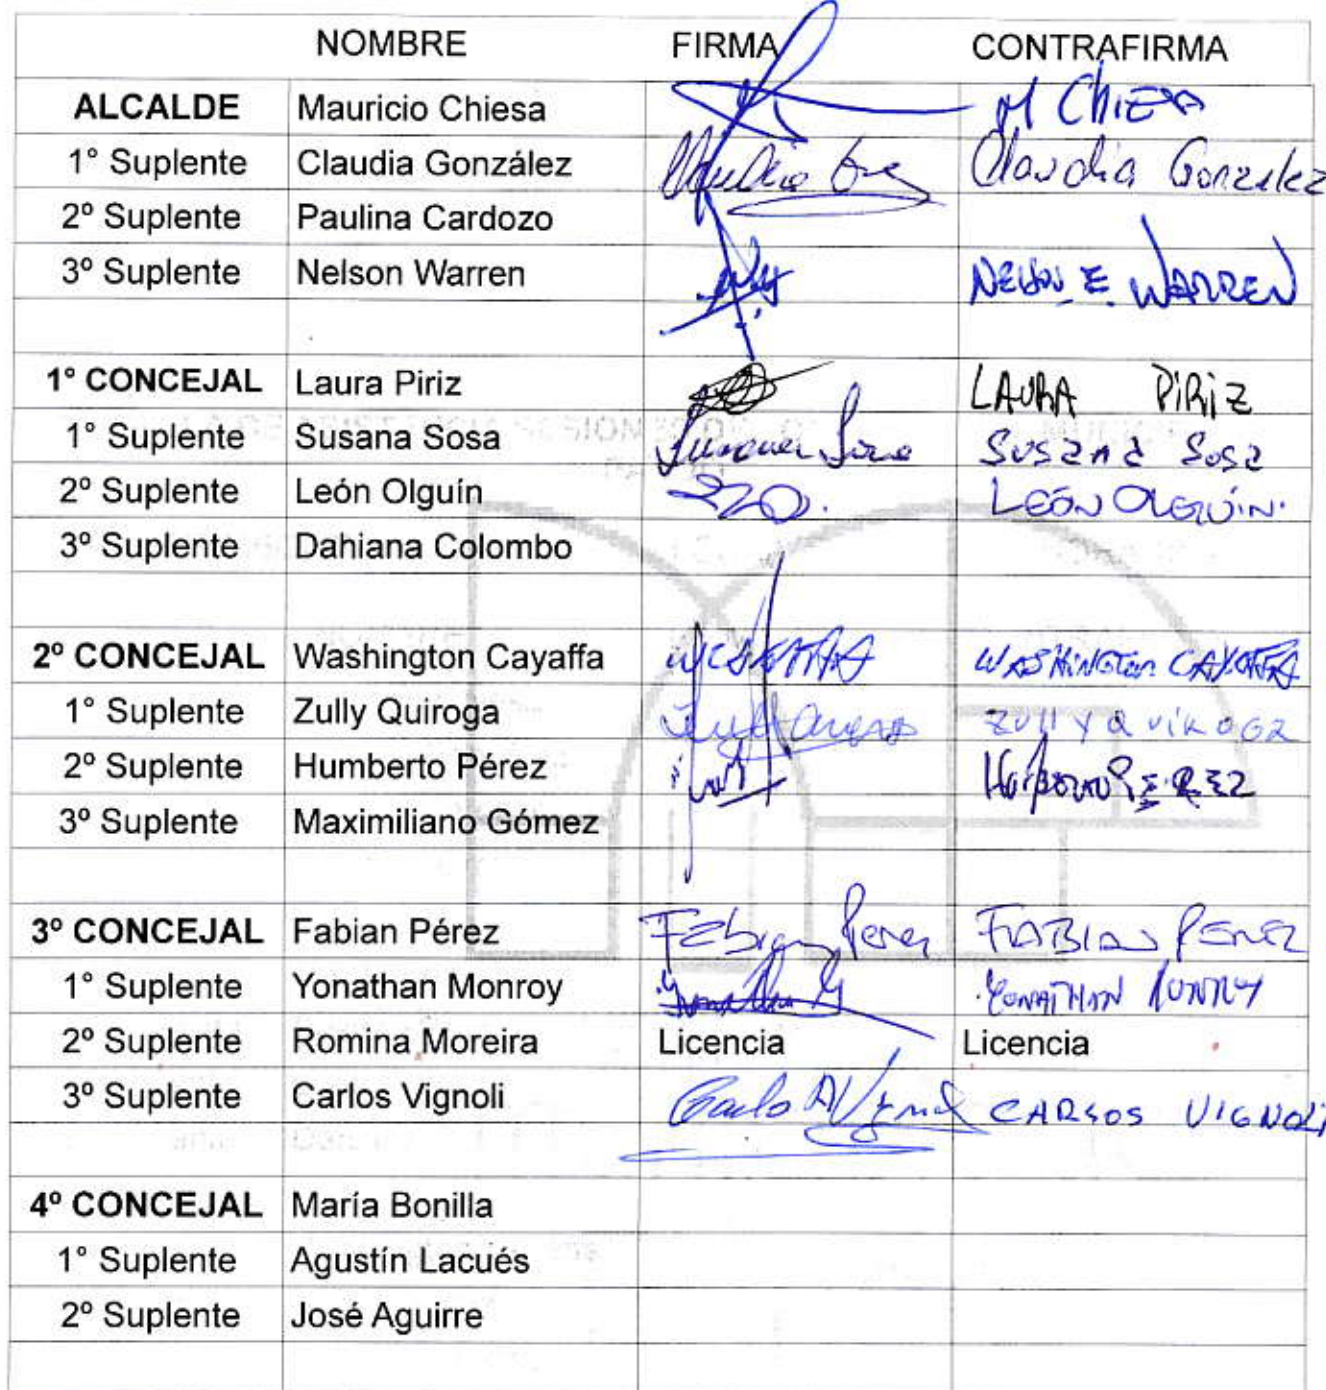 NOMBRE FIRMA CONTRAFIRMA
ALCALDE Mauricio Chiesa M CHIESA
1° Suplente Claudia González Claudia Gonzalez
2º Suplente Paulina Cardozo
3º Suplente Nelson Warren NELSON E. WARREN
1° CONCEJAL Laura Piriz LAURA PIRIZ
1° Suplente Susana Sosa Susana Sosa SUSANA SOSA
2º Suplente León Olguín LEÓN OLGUÍN.
3º Suplente Dahiana Colombo
2º CONCEJAL Washington Cayaffa WASHINGTON CAYAFFA
1° Suplente Zully Quiroga ZULLY QUIROGA
2º Suplente Humberto Pérez HUMBERTO PEREZ
3º Suplente Maximiliano Gómez
3º CONCEJAL Fabian Pérez Fabian Perez FABIAN PEREZ
1° Suplente Yonathan Monroy YONATHAN MONROY
2º Suplente Romina Moreira Licencia Licencia
3º Suplente Carlos Vignoli CARLOS VIGNOLI
4º CONCEJAL María Bonilla
1° Suplente Agustín Lacués
2º Suplente José Aguirre